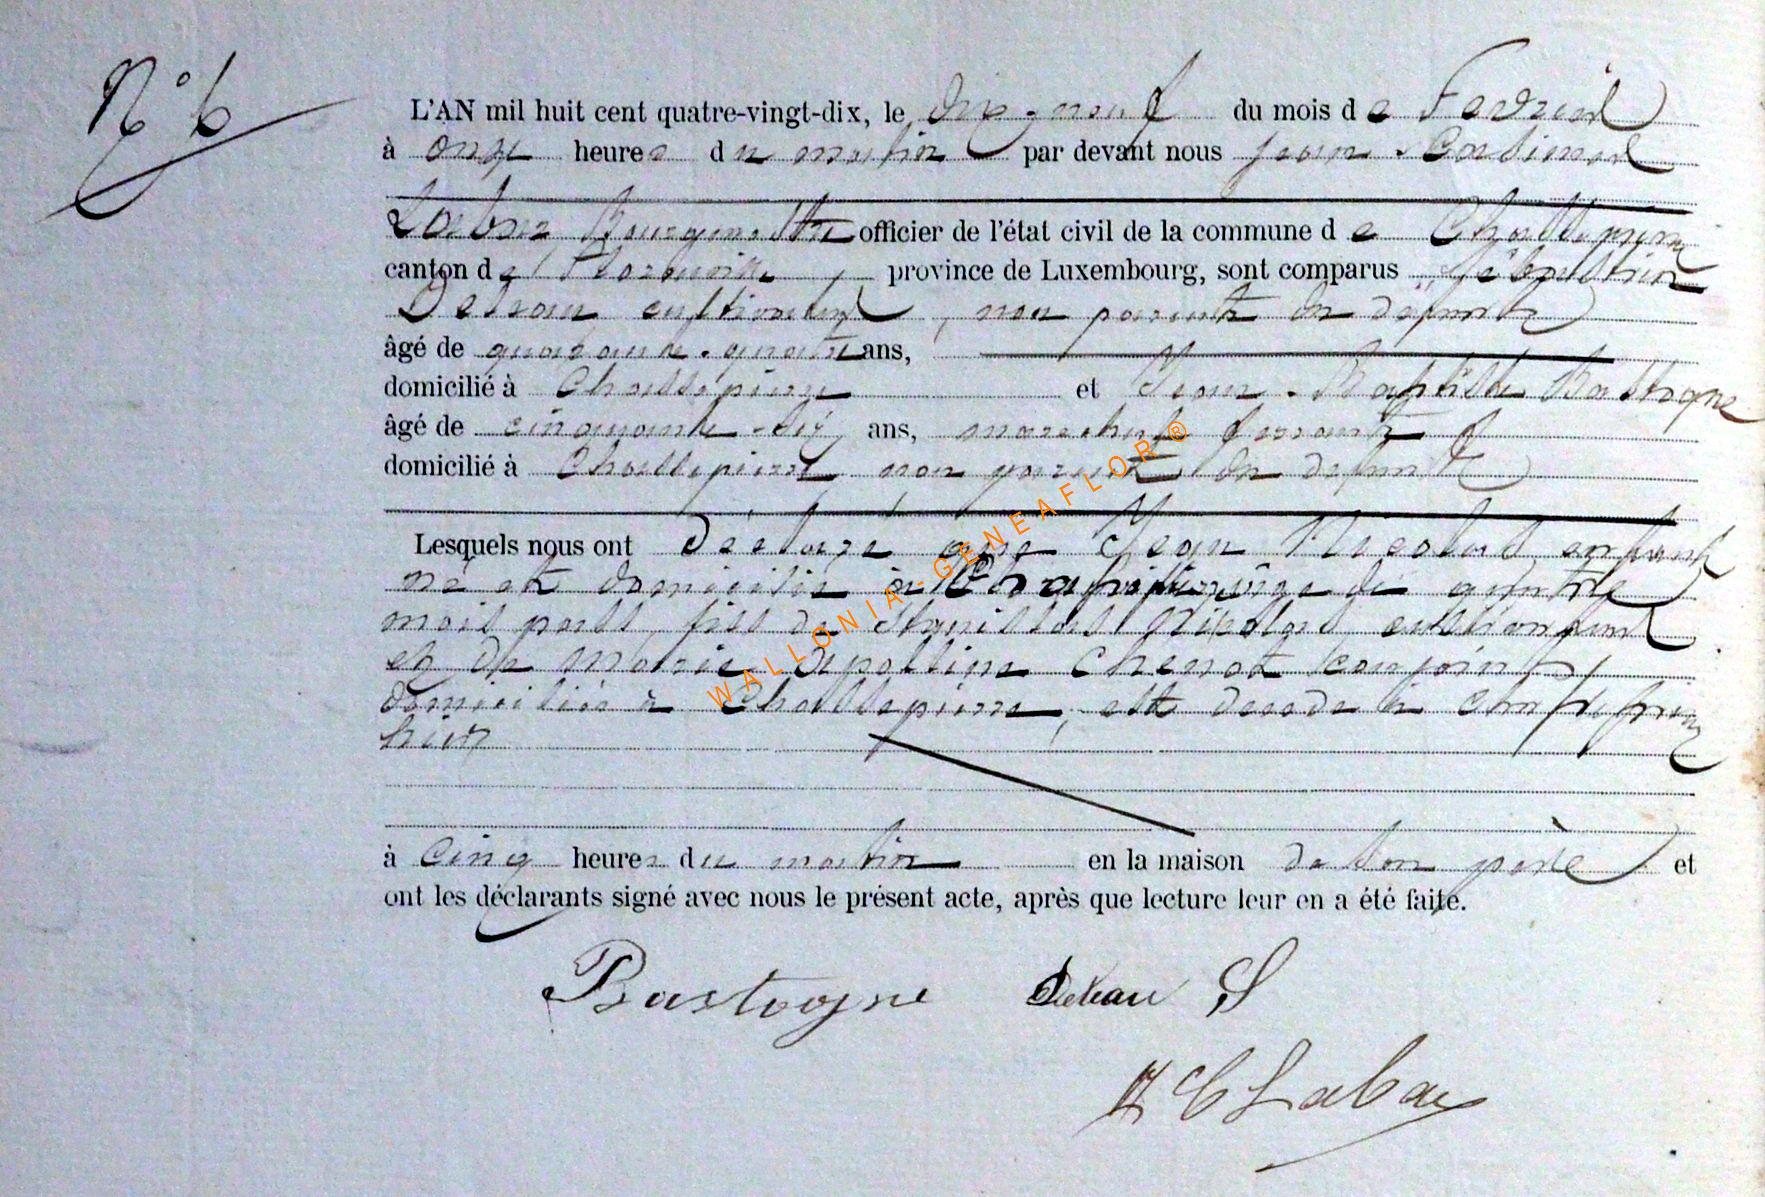 N° 6
L'AN mil huit cent quatre-vingt-dix, le dix-neuf du mois de Fevrier
à onze heures du matin par devant nous Jean-
Bourgmestre officier de l'état civil de la commune de Chassepierre
canton de Florenville, province de Luxembourg, sont comparus Sébastien
cultivateur, non parent du defunt
âgé de quarante-quatre ans,
domicilié à Chassepierre et Jean-Baptiste Bastogne
âgé de cinquante-six ans, marechal ferrant
domicilié à Chassepierre non parent du defunt
Lesquels nous ont déclaré que Jean Nicolas enfant
né et domicilié à Chassepierre âgé de quatre
mois passés, fils de Stanislas Nicolas, cultivateur
et de Marie-Apolline Chenot conjoints
domiciliés à Chassepierre, est decede à Chassepierre
hier
à cinq heures du matin en la maison de son père et
ont les déclarants signé avec nous le présent acte, après que lecture leur en a été faite.
WALLONIA-GENEAFLOR®
Bastogne S